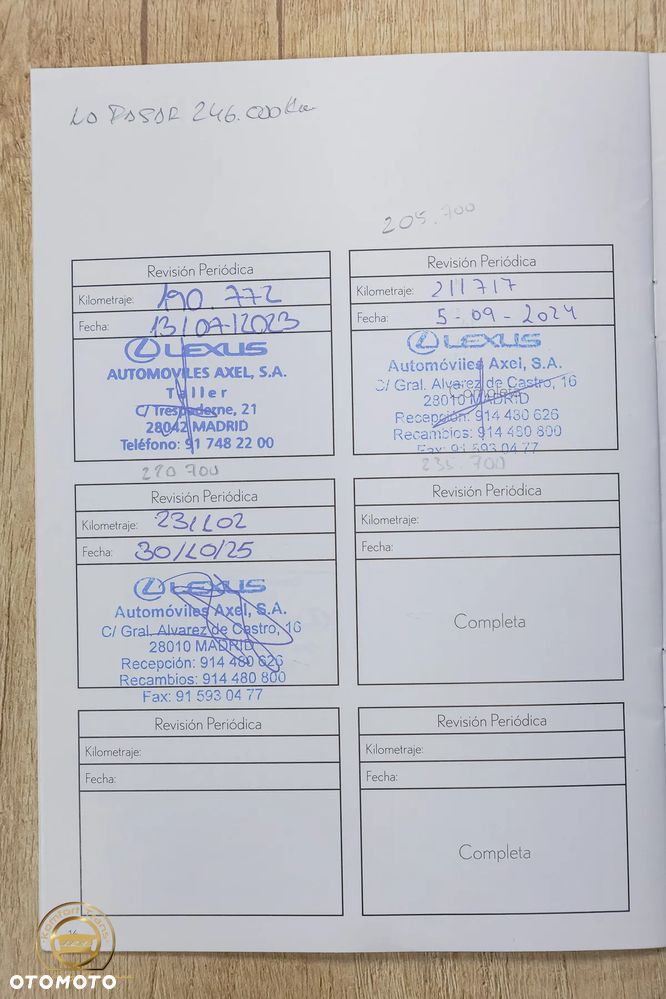 LO PASAR 246.000 Km
205.700
Revisión Periódica
Kilometraje: 190.772
Fecha: 13/07/2023
LEXUS
AUTOMOVILES AXEL, S.A.
Taller
C/ Trespaderne, 21
28042 MADRID
Teléfono: 91 748 22 00
Revisión Periódica
Kilometraje: 211717
Fecha: 5-09-2024
LEXUS
Automóviles Axel, S.A.
C/ Gral. Alvarez de Castro, 16
Completa
28010 MADRID
Recepción: 914 480 626
Recambios: 914 480 800
Fax: 91 593 04 77
220 700
Revisión Periódica
Kilometraje: 231102
Fecha: 30/10/25
LEXUS
Automóviles Axel, S.A.
C/ Gral. Alvarez de Castro, 16
28010 MADRID
Recepción: 914 480 626
Recambios: 914 480 800
Fax: 91 593 04 77
235.700
Revisión Periódica
Kilometraje:
Fecha:
Completa
Revisión Periódica
Kilometraje:
Fecha:
Revisión Periódica
Kilometraje:
Fecha:
Completa
Komfort Trans
OTOMOTO